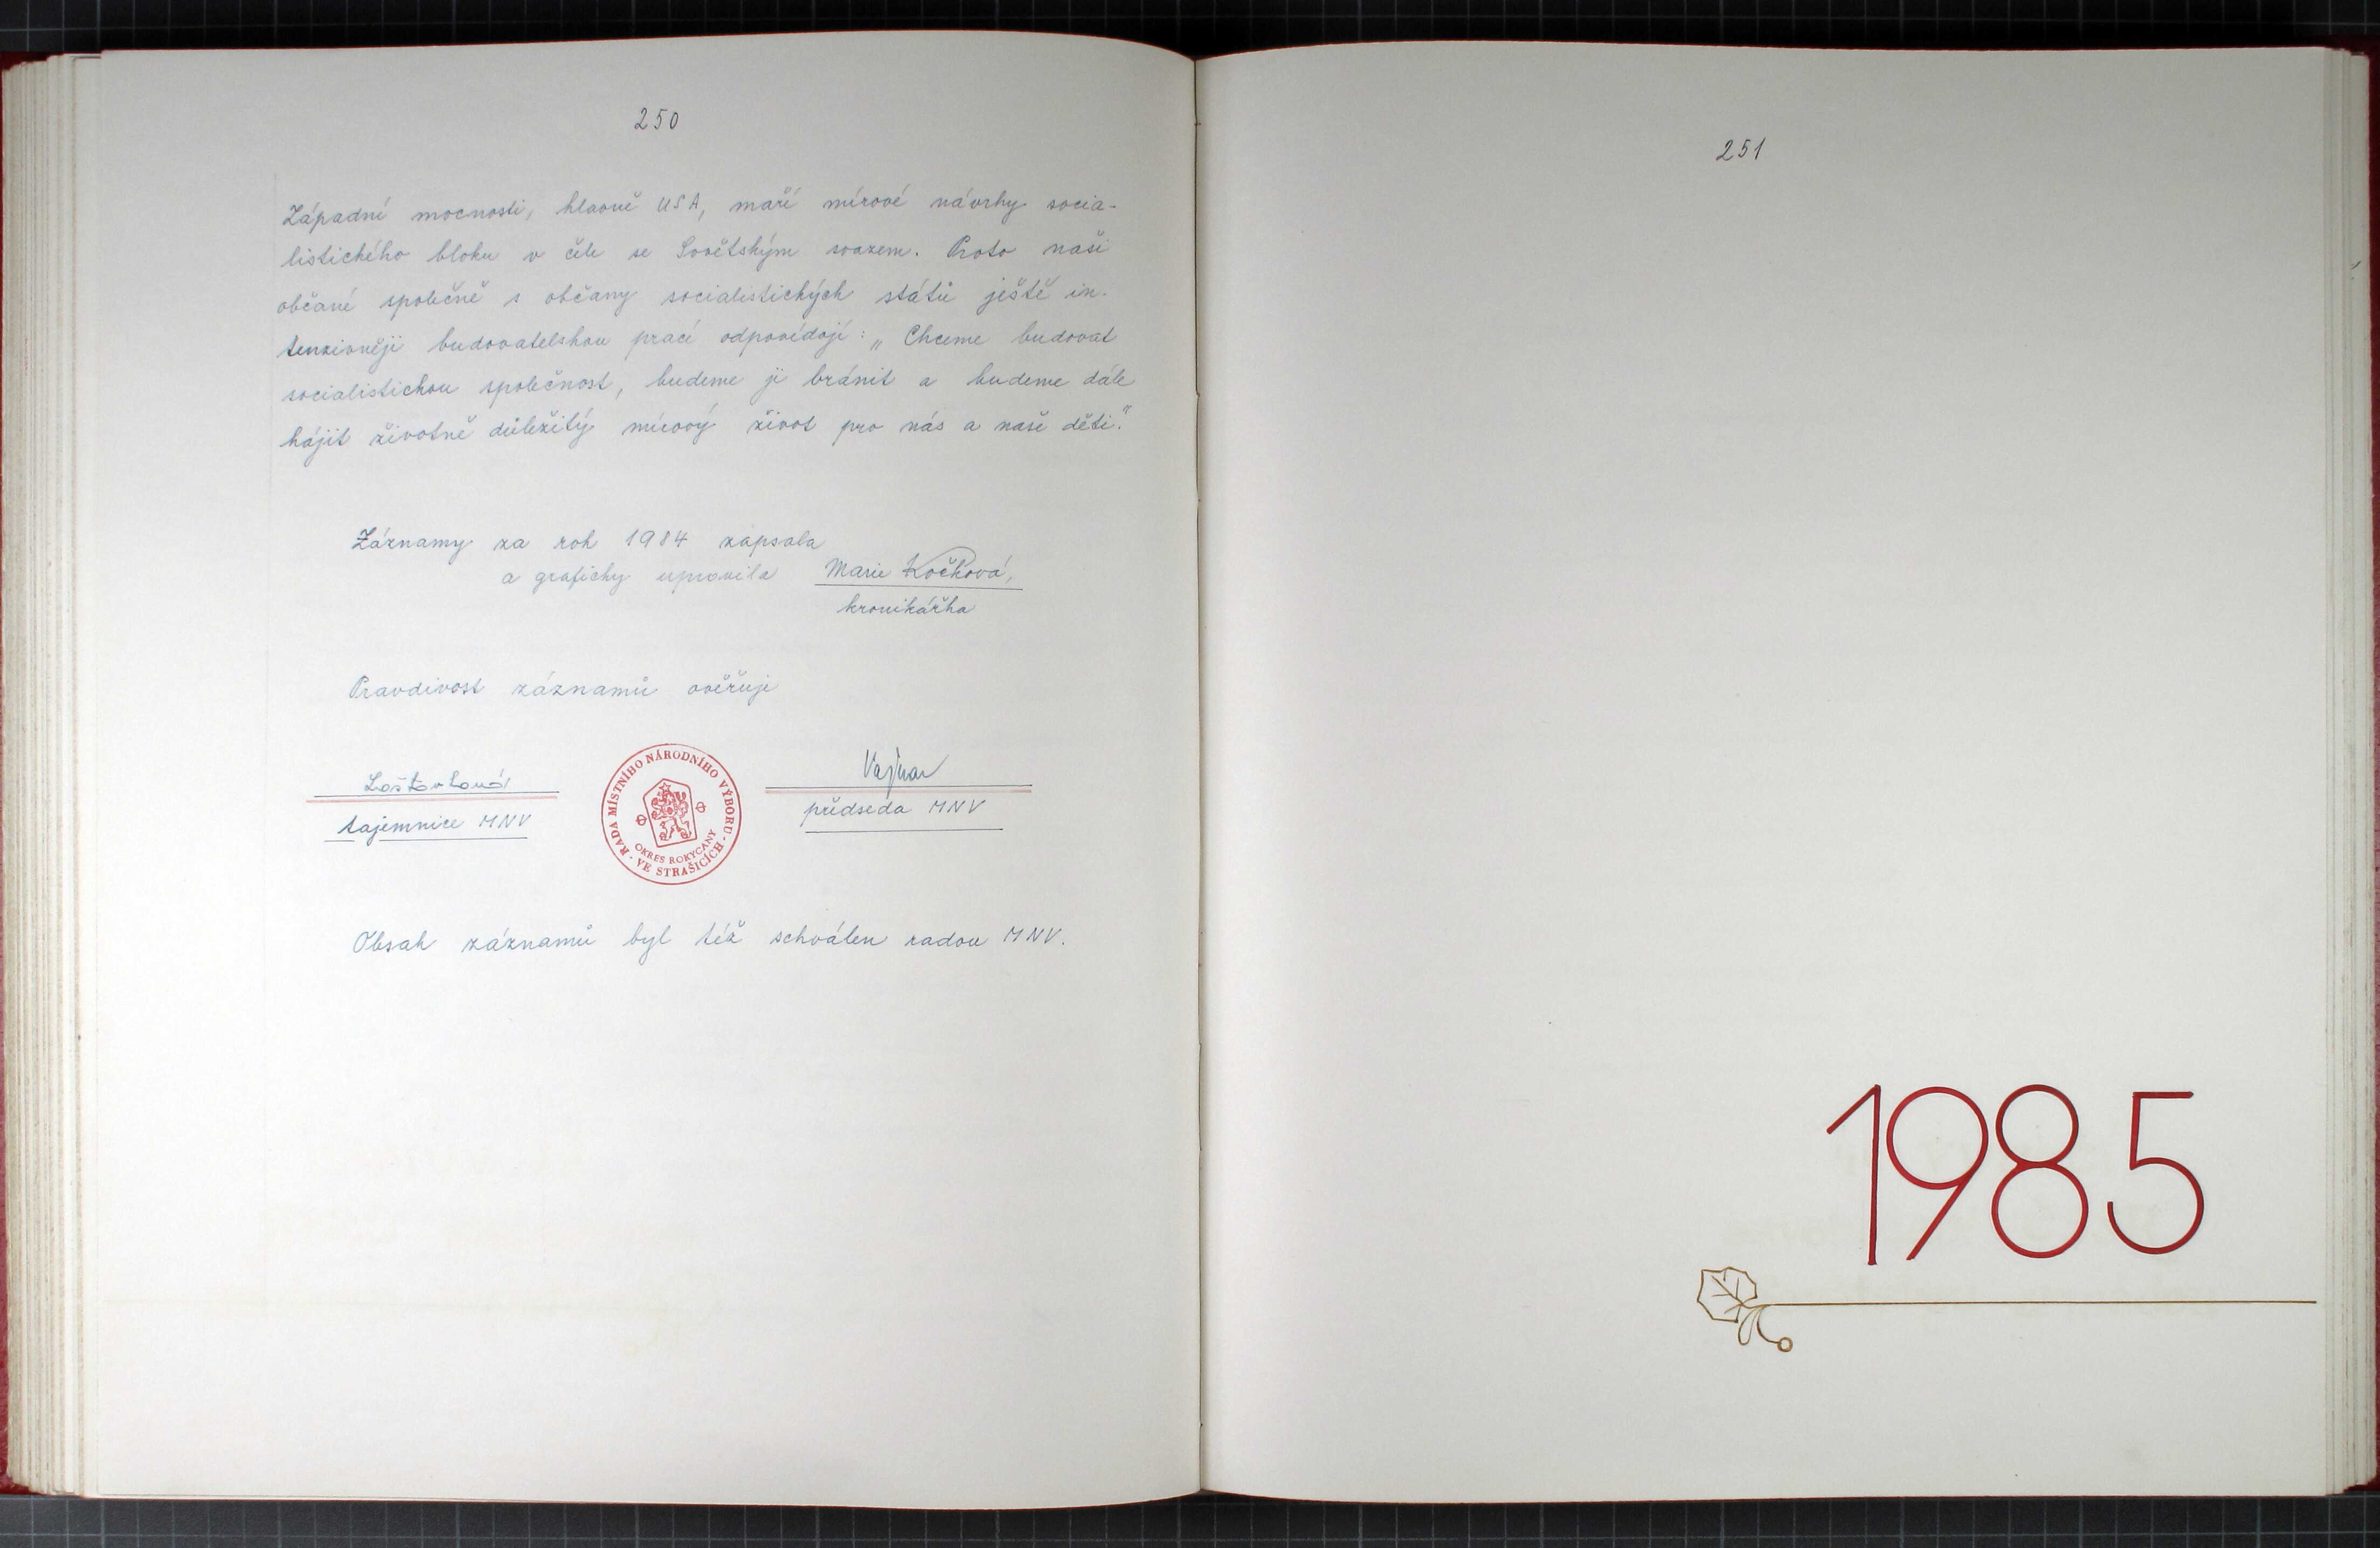 250
Západní mocnosti, hlavně USA, maří mírové návrhy socia-
listického bloku v čele se Sovětským svazem. Proto naši
občané společně s občany socialistických států ještě in-
tenzivněji budovatelskou prací odpovídají: „Chceme budovat
socialistickou společnost, budeme ji bránit a budeme dále
hájit životně důležitý mírový život pro nás a naše děti."
Záznamy za rok 1984 zapsala
a graficky upravila Marie Kočková,
kronikářka
Pravdivost záznamů ověřuje
tajemnice MNV
RADA MÍSTNÍHO NÁRODNÍHO VÝBORU
VE STRAŠICÍCH
OKRES ROKYCANY
Vajnar
předseda MNV
Obsah záznamů byl též schválen radou MNV.
251
1985